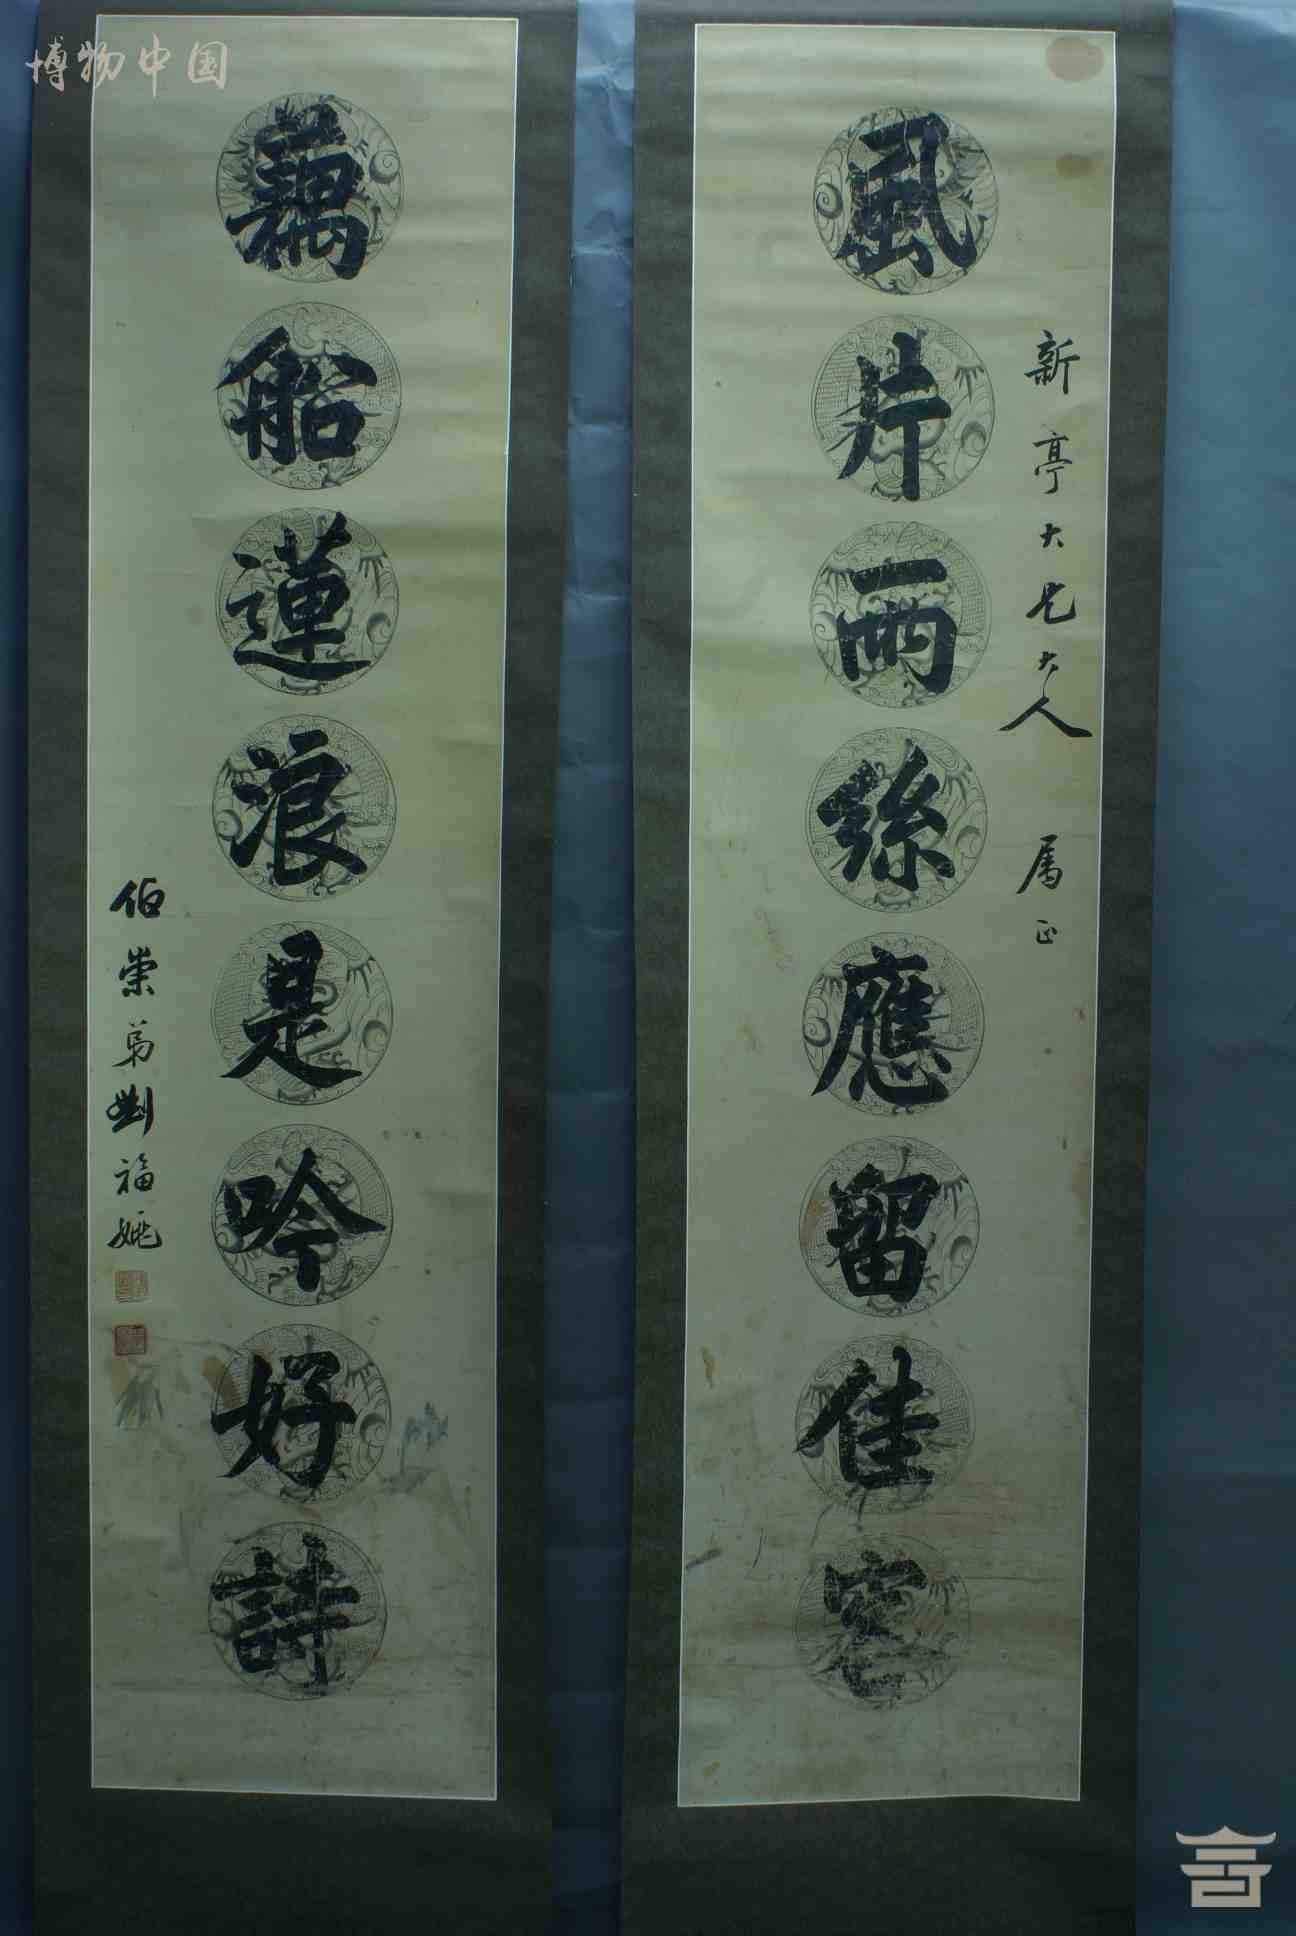 博物中国
新亭大兄大人 属正
風片雨絲應留佳客
藕船蓮浪是吟好詩
伯崇弟劉福姚